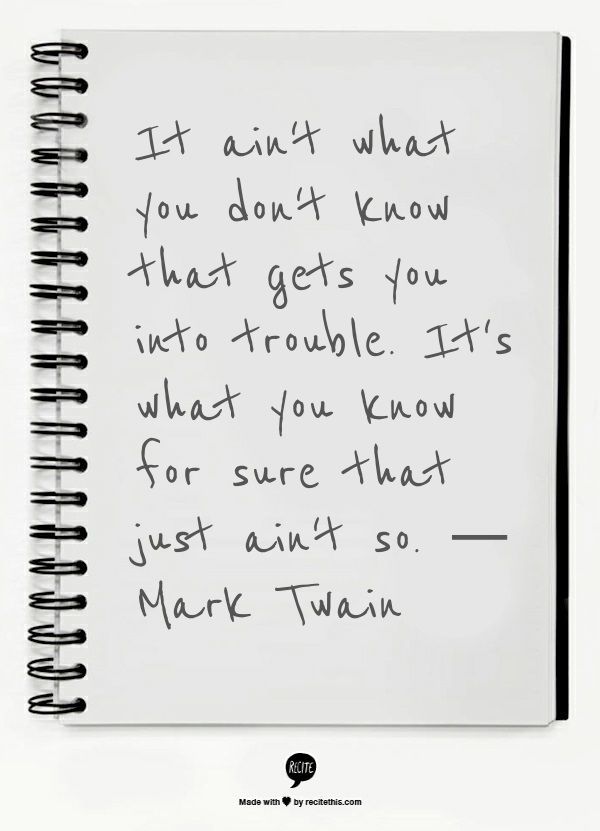 It ain't what
you don't know
that gets you
into trouble. It's
what you know
for sure that
just ain't so. —
Mark Twain
RECITE
Made with ♥ by recitethis.com